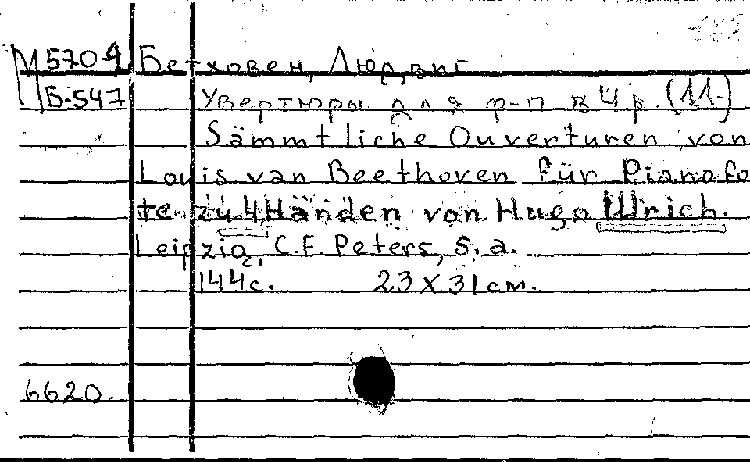 М5704 Бетховен, Людвиг
Б-547 Увертюры для ф-п в 4 р. (11.)
Sämmtliche Ouverturen von
Louis van Beethoven für Pianofo
te zu 4 Händen von Hugo Ulrich.
Leipzig, C.F. Peters, s.a.
144с. 23 x 31 см.
6620